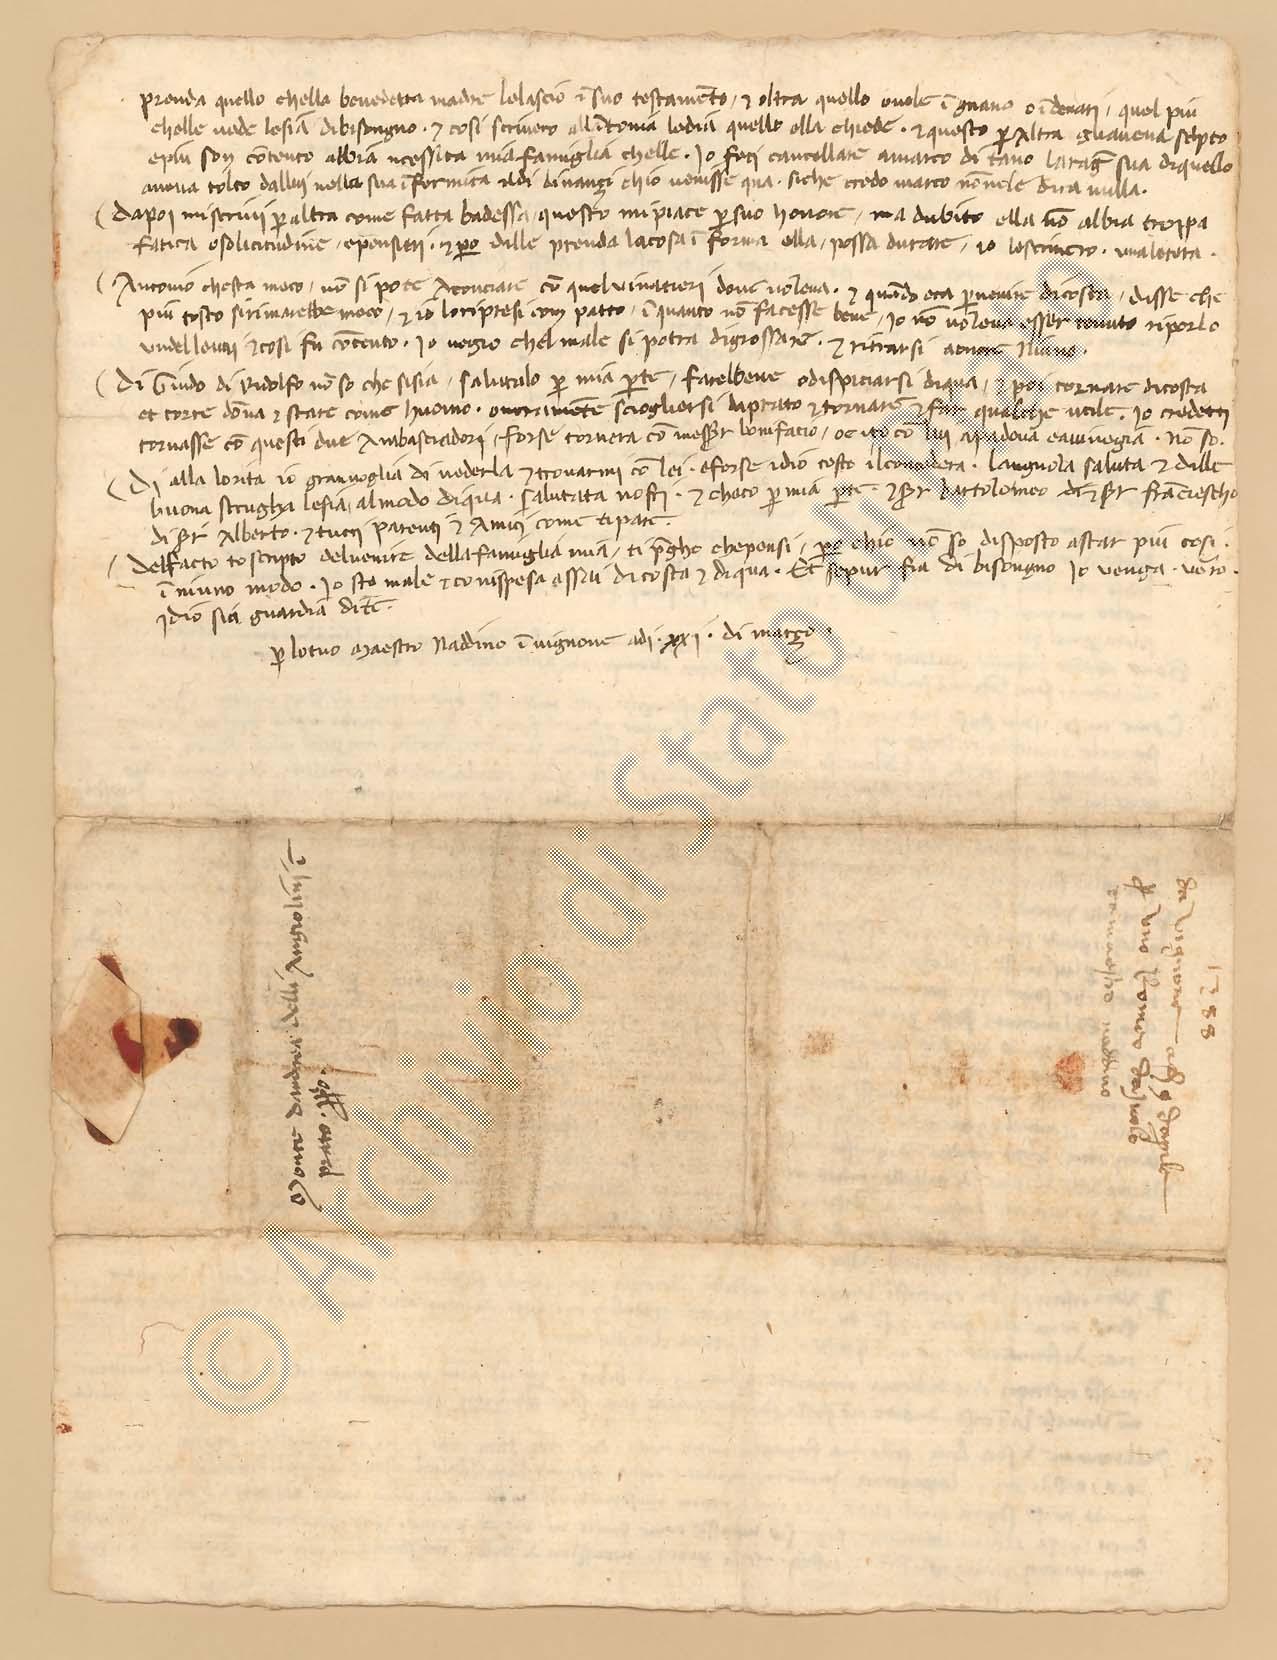 prenda quello chella benedetta madre le lascio ĩ suo testamẽto / & oltra quello vuole ĩ grano o ĩ denari / quel piu
chelle vede le sia di bisongno · & cosi scrivero all ãtonia le dia quello ella chiede · & questo p altra gliavea scripto
e piu son cõtento abbia necessita mia famiglia chelle · Io feci cancellare a marco di tano la rag̃ sua di quello
aveva tolto da llui nella sua ĩfermita il di dinanzi chio venisse qua · siche credo marco nõ vele dira nulla ·
( Da poi mi scrivi p altra come fatta badessa / questo mi piace p suo honore / ma dubito ella nõ abbia troppa
fatica o solicitudine / e pensieri · & po dille prenda la cosa ĩ forma ella / possa durare / io le scrivero · una letera ·
( Antonio che sta meco / nõ si pote aconciare cõ quel vinatieri dove voleva · & quãdo era p venire di costa / disse che
piu tosto si rimarebbe meco / & io lo ripresi con patto / ĩ quanto nõ facesse bene / Io nõ voleva esser tenuto riporlo
vudellevai & cosi fu cõtento · Io vegio chel male si potra digrossare · & ritrarsi a
( Di Guido di Ridolfo nõ so che si sia / salutalo p mia pte / farebbene o dispiciarsi di qua / & poi tornare di costa
et torre dõna & stare come huomo · overamẽte sciogliersi da prato & tornare & far qualche utile · Io credetti
tornasse cõ questi due Ambasciadori / forse tornera cõ messer bonifacio / o e ito cõ lui a padova e a vinegia · Nõ so ·
( Di alla lorita io gran voglia di vederla & trovarmi cõ lei · e forse idio tosto il concedera · l'angnola saluta & dille
buona strugha le sia al modo di qua · saluta ta nostri · & checo p mia pte · & ser bartolomeo & ser frãciescho
di ser Alberto · & tutti parenti & Amici come ti pare ·
( Del facto to scripto del venire della famiglia mia / ti p̃gho che pensi / po chio nõ so disposto a star piu cosi ·
ĩ niuno modo · Io sto male & cõ ispesa assai di costa & di qua · Et se pur fia di bisongno Io venga · verro ·
idio sia guardia di te ·
p lo tuo Maestro Naddino ĩ vignone adi · xxj · di marzo ·
Monte dandrea delli Angiolini ĩ
prato · ppo ·
1388
Da Vignone a di 9 daprile
maestro naddino
© Archivio di Stato di Prato